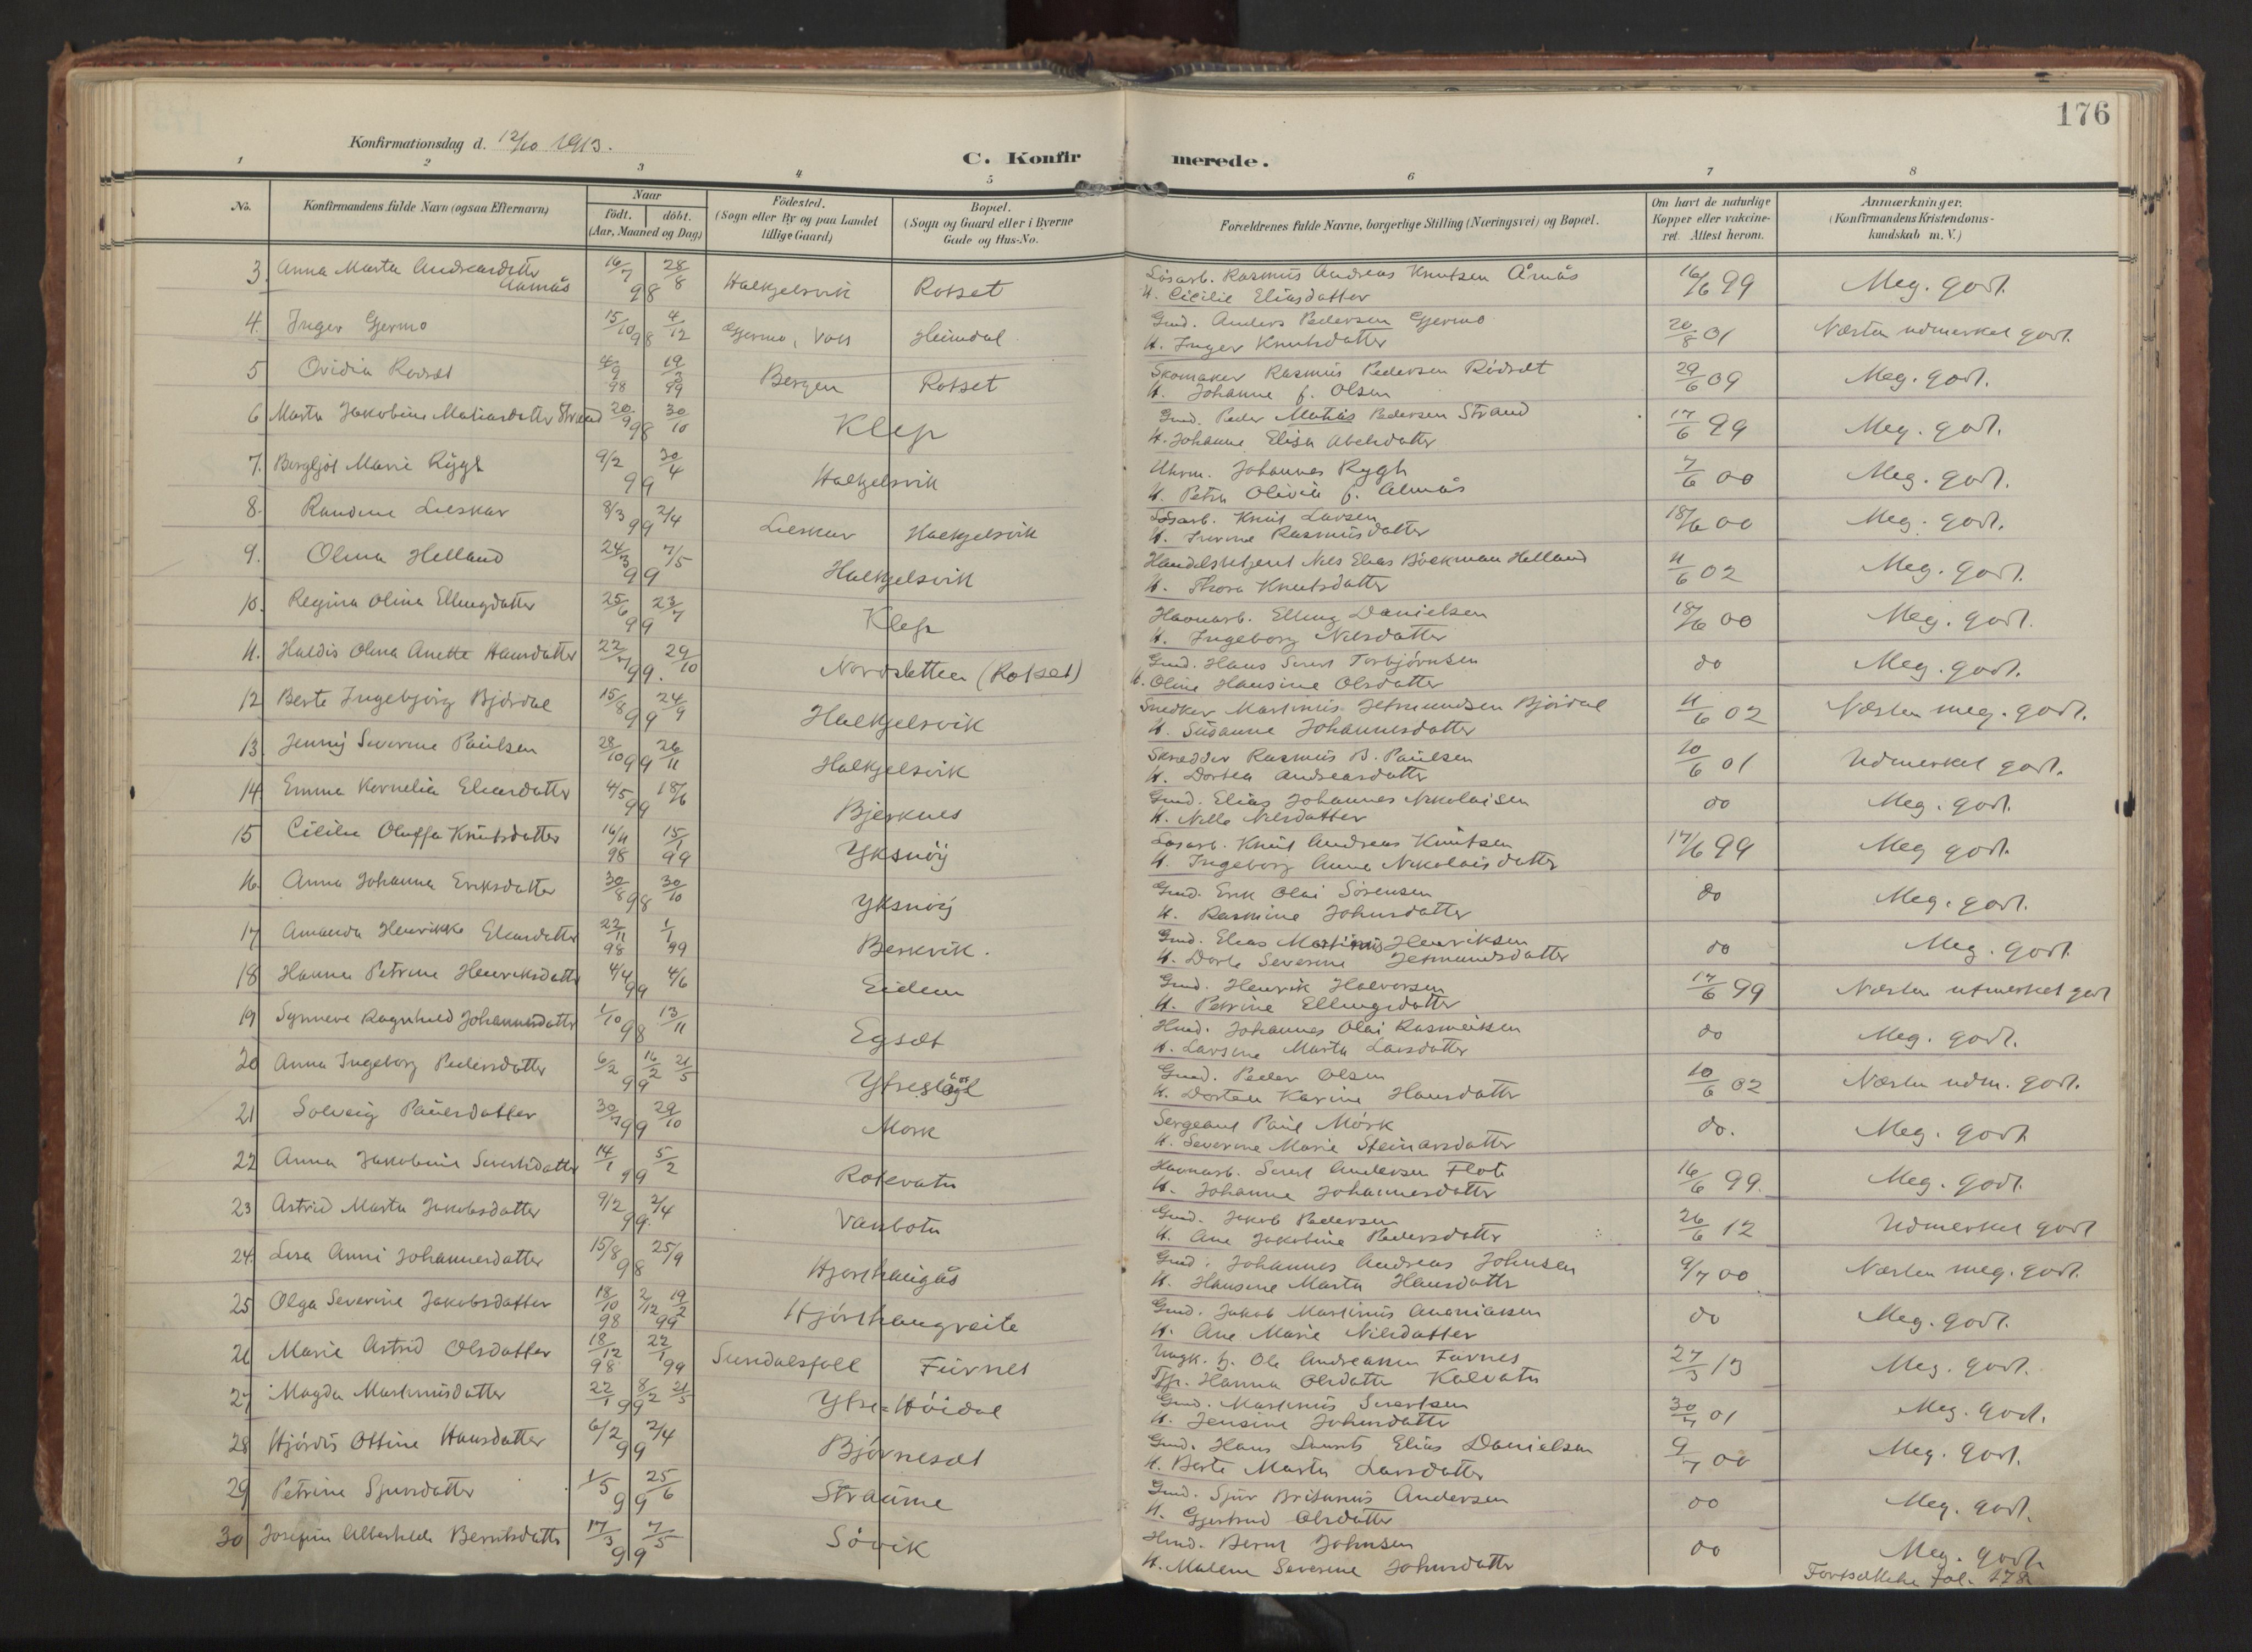 176
Konfirmationsdag d. 12/10 1913.
C. Konfirmerede.
1 2 3 4 5 6 7 8
No.
Konfirmandens fulde Navn (ogsaa Efternavn)
Naar
födt. döbt.
(Aar, Maaned og Dag)
Födested.
(Sogn eller By og paa Landet
tillige Gaard)
Bopæl.
(Sogn og Gaard eller i Byerne
Gade og Hus-No.
Forældrenes fulde Navne, borgerlige Stilling (Næringsvei) og Bopæl.
Om havt de naturlige
Kopper eller vakcine-
ret. Attest herom.
Anmærkninger.
(Konfirmandens Kristendoms-
kundskab m. V.)
3. Anna Marta Andreasdatter Aamås 16/7 98 28/8 Halkjelsvik Rotset Lösarb. Rasmus Andreas Knutsen Åmås 16/6 99 Meg. godt.
H. Cicilie Eliasdatter
4. Inger Gjermo 15/10 98 4/12 Gjermo, Voss Heimdal Gmd. Anders Pedersen Gjermo 20/8 01 Næsten udmerket godt.
H. Inger Knutsdatter
5 Ovidia Rødset 4/9 98 19/3 99 Bergen Rotset Skomaker Rasmus Pedersen Rödset 29/6 09 Meg. godt.
H. Johanne f. Olsen
6 Marta Jakobine Matiasdatter Strand 20/9 98 30/10 Klep Gmd. Peder Matias Pedersen Strand 17/6 99 Meg. godt.
H. Johanne Elisa Abelsdatter
7. Bergljot Marie Rygh 9/2 99 30/4 Halkjelsvik Uhrm. Johannes Rygh 7/6 00 Meg. godt.
H. Petra Olivia f. Almås
8. Randine Lieskar 8/3 99 2/4 Lieskar Halkjelsvik Lösarb. Knut Larsen 18/6 00 Meg. godt.
H. Rasmusdatter
9. Olma Helland 24/3 99 7/5 Halkjelsvik Handelsbetjent Nils Elias Böckman Helland 11/6 02 Meg. godt.
H. Thora Knutsdatter
10. Regina Olina Ellingdatter 25/6 99 23/7 Klep Havnarb. Elling Danielsen 18/6 00 Meg. godt.
H. Ingeborg Nilsdatter
11. Haldis Olena Anette Hansdatter 22/7 99. 29/10 Nordsletten (Rotset) Gmd. Hans Sivert Torbjörnsen do Meg. godt.
H. Oline Hansine Olsdatter
12 Berte Ingebjörg Björdal 15/8 99 24/9 Halkjelsvik Snedker Martinus Jetmundsen Björdal 11/6 02 Næsten meg. godt.
H. Susanne Johannesdatter
13. Jenny Severine Paulsen 28/10 99 26/11 Halkjelsvik Skrædder Rasmus B. Paulsen 10/6 01 Udmerket godt.
H. Dortea Andreasdatter
14 Emma Kornelia Eliasdatter 4/5 99 18/6 Bjerknes Gmd. Elias Johannes Nikolaisen do Meg. godt.
H. Nille Nilsdatter
15 Cicilie Oluffa Knutsdatter 16/11 98 15/1 99 Yksnöy Lösarb. Knut Andreas Knutsen 17/6 99 Meg godt.
H. Ingeborg Anne Nikolaisdatter
16. Anna Johanna Eriksdatter 30/8 98 30/10 Yksnöy Gmd. Erik Olai Sörensen do Meg. godt.
H. Rasmine Johnsdatter
17 Amanda Henrikke Eliasdatter 22/11 98 1/1 99 Berkvik. Gmd. Elias Martinus Henriksen do Meg. godt.
H. Dorte Severine Jetmundsdatter
18 Hanna Petrine Henriksdatter 4/4 99 4/6 Eidem Gmd. Henrik Halvorsen 17/6 99 Næsten utmerket godt
H. Petrine Ellingsdatter
19 Synneve Ragnhild Johannesdatter 1/10 98 13/11 Egset Hmd. Johannes Olai Rasmussen do Meg. godt.
H. Larsine Marta Larsdatter
20 Anna Ingeborg Pedersdatter 6/2 99 16/2 21/5 Gmd. Peder Olsen 10/6 02 Næsten udm. godt.
H. Dortea Karine Hansdatter
21 Solveig Paulsdatter 30/7 99 29/10 Mork Sergeant Paul Mörk do. Meg. godt
H. Severine Marie Steinarsdatter
22 Anna Jakobine Sivertsdatter 14/1 99 5/2 Rotevatn Havnarb. Sivert Andersen Flote 16/6 99. Meg. godt.
H. Johanne Johannesdatter
23 Astrid Marta Jakobsdatter 9/2 99. 2/4 Vasbotn Gmd. Jakob Pedersen 26/6 12 Udmerket godt
H. Ane Jakobine Pedersdatter
24. Lisa Anni Johannesdatter 15/8 98 25/9 Hjorthaugås Gmd. Johannes Andreas Johnsen 9/7 00 Næsten meg. godt.
H. Hansine Marta Hansdatter
25 Olga Severine Jakobsdatter 18/10 98 2/12 19/2 99 Hjorthaugreite Gmd. Jakob Martinus Ananiassen do Meg. godt.
H. Ane Marie Nilsdatter
26 Marie Astrid Olsdatter 18/12 98 22/1 99 Sundalsfoll Furnes Ungk. Ole Andreassen Furnes 27/3 13 Meg. godt.
Hanna Olsdatter Kalvatn
27 Magda Martinusdatter 22/1 99 8/2 21/5 Ytre-Höidal Gmd. Martinus Sivertsen 30/7 01 Meg. godt.
H. Jensine Johnsdatter
28 Hjördis Ottine Hansdatter 6/2 99 2/4 Björneset Gmd. Hans Laurits Elias Danielsen 9/7 00 Meg. godt.
H. Berte Marta Larsdatter
29 Petrine Sjursdatter 1/5 99 25/6 Straume Gmd. Sjur Andersen do Meg. godt.
H. Gjertrud Olsdatter
30 Josefine Berntsdatter 17/3 99 7/5 Sövik Hmd. Bernt Johnsen do Meg. godt
H. Malene Severine Johnsdatter
Fortsættelse fol. 178